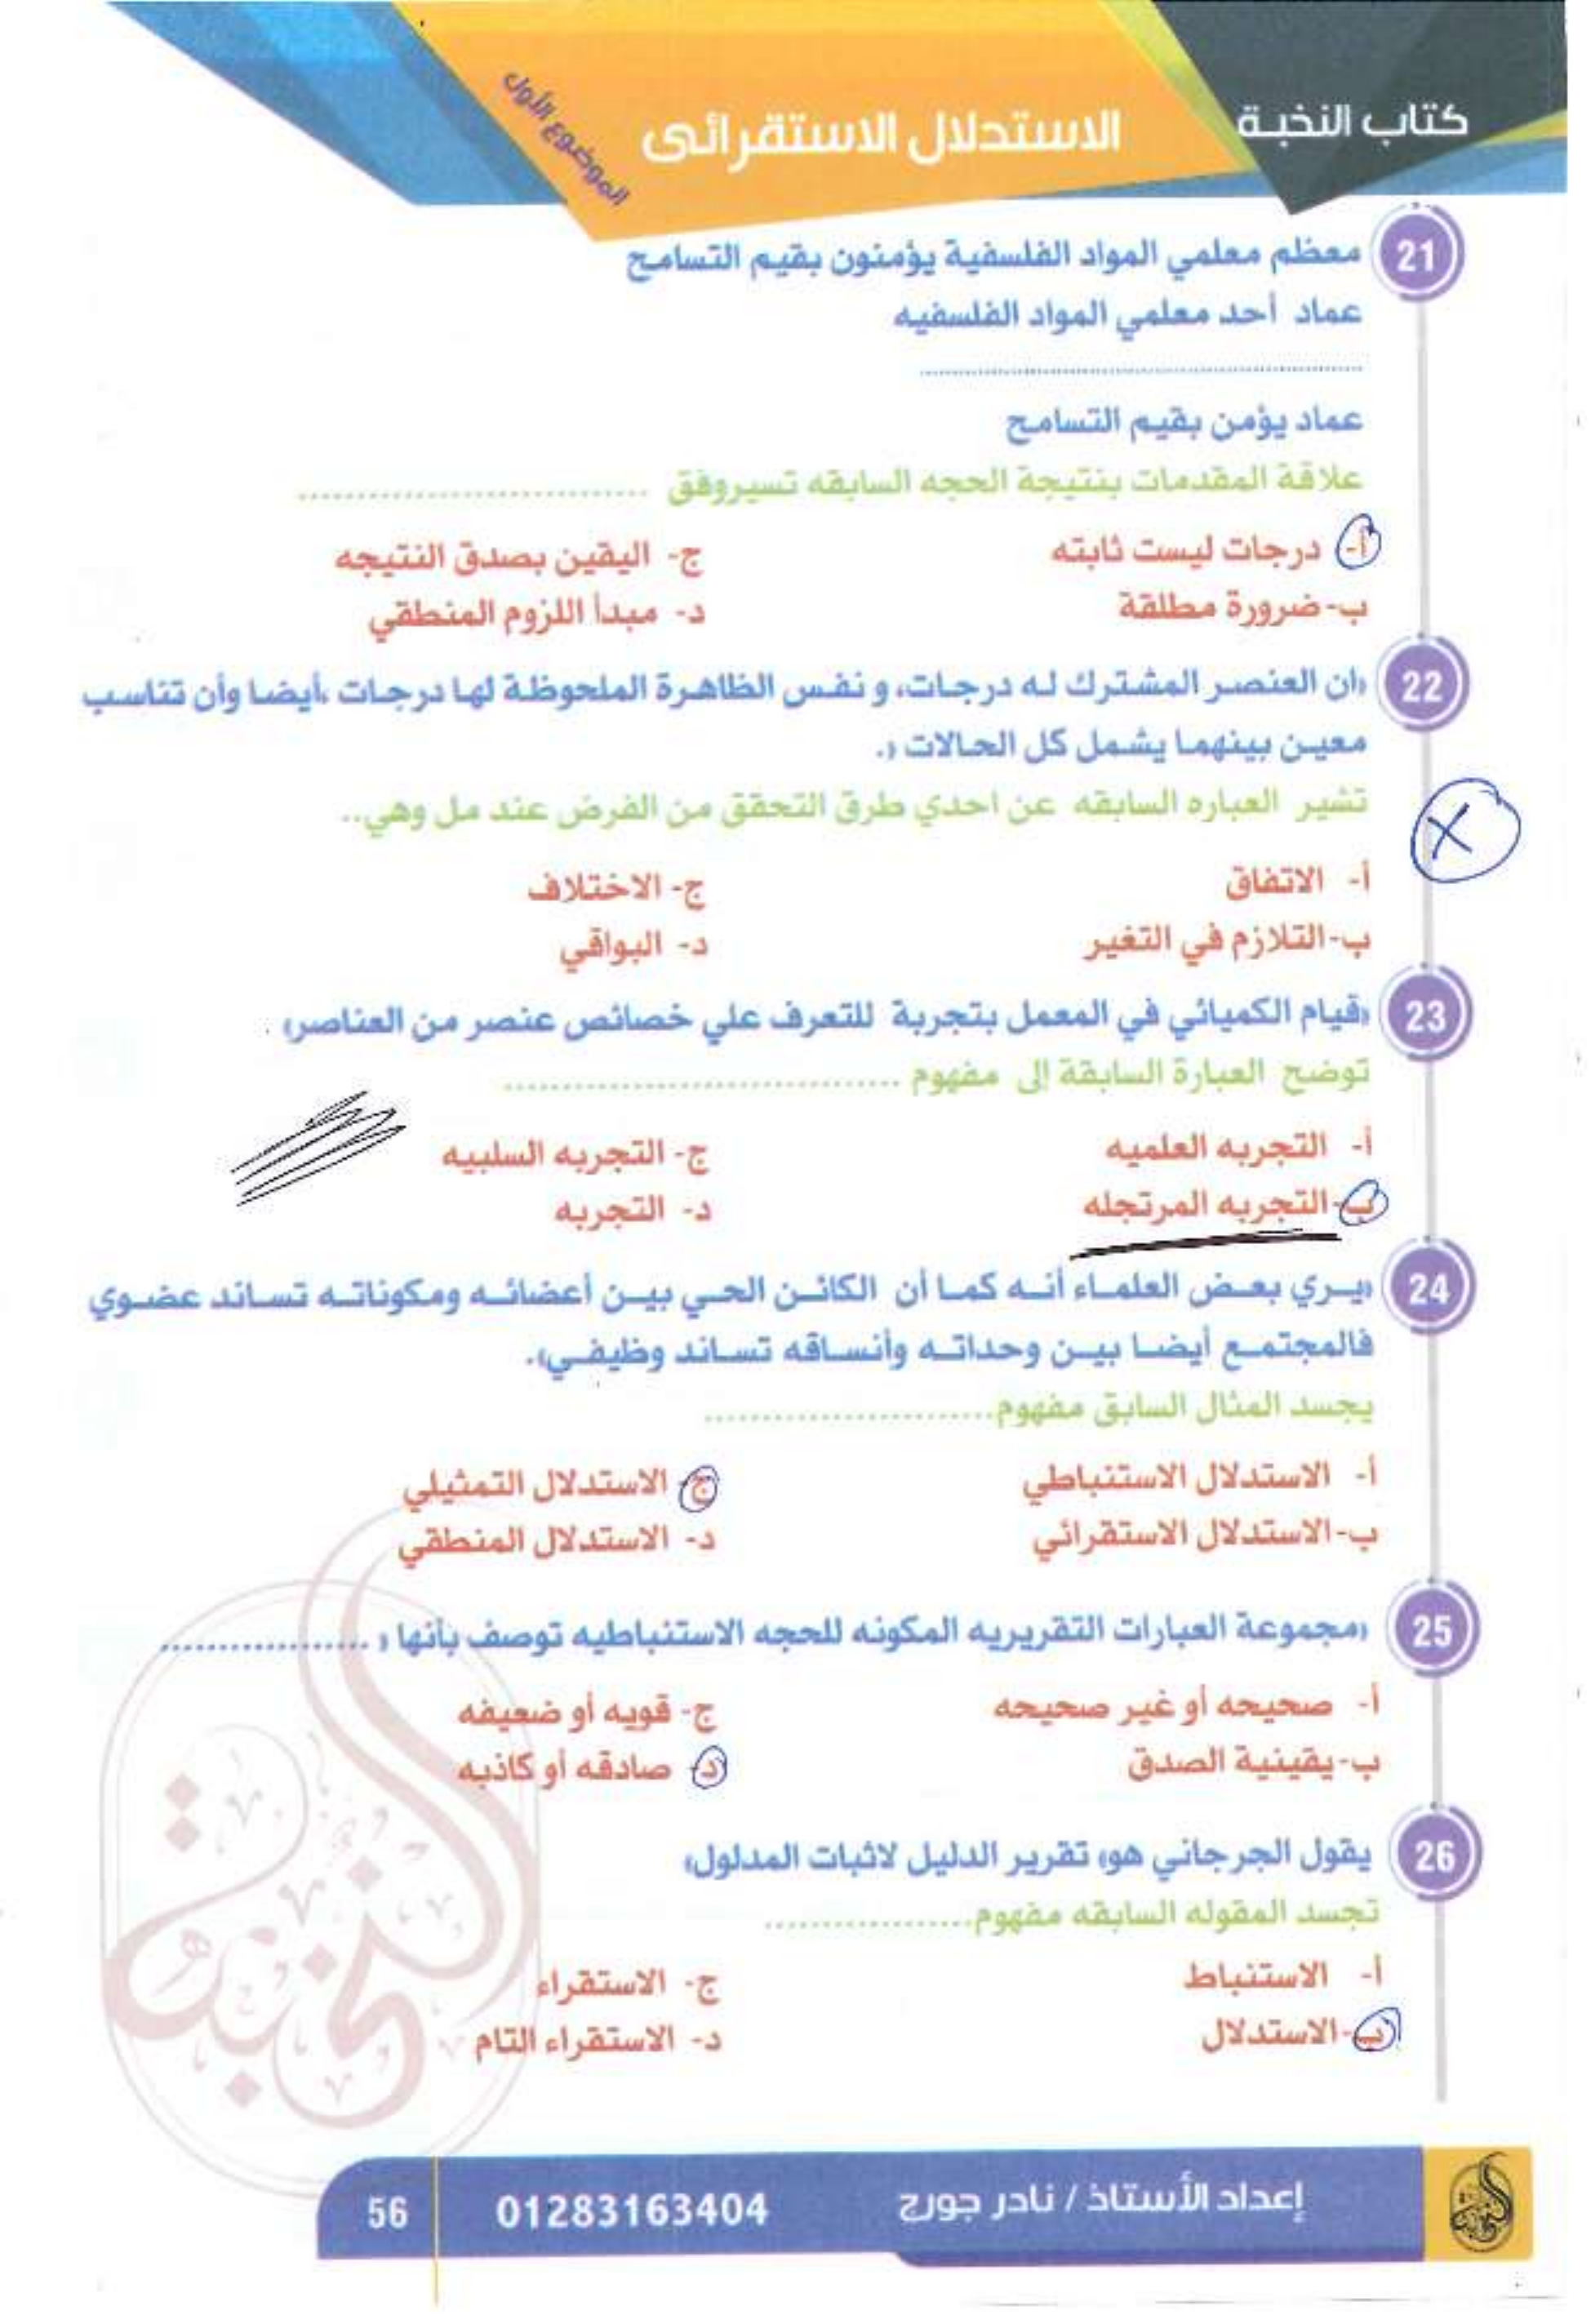 كتاب النخبة
الاستدلال الاستقرائى
الموضوع الأول
21 معظم معلمي المواد الفلسفية يؤمنون بقيم التسامح
عماد أحد معلمي المواد الفلسفيه
........................................
عماد يؤمن بقيم التسامح
علاقة المقدمات بنتيجة الحجه السابقه تسيروفق ..............................
أ- درجات ليست ثابته
ج- اليقين بصدق النتيجه
ب- ضرورة مطلقة
د- مبدأ اللزوم المنطقي
22 «ان العنصر المشترك له درجات، و نفس الظاهرة الملحوظة لها درجات ،أيضا وأن تناسب
معين بينهما يشمل كل الحالات «.
تشير العباره السابقه عن احدي طرق التحقق من الفرض عند مل وهي..
X
أ- الاتفاق
ج- الاختلاف
ب-التلازم في التغير
د- البواقي
23 «قيام الكميائي في المعمل بتجربة للتعرف علي خصائص عنصر من العناصر» .
توضح العبارة السابقة إلى مفهوم ..................................
أ- التجربه العلميه
ج- التجربه السلبيه
ب-التجربه المرتجله
د- التجربه
24 «يري بعض العلماء أنه كما أن الكائن الحي بين أعضائه ومكوناته تساند عضوي
فالمجتمع أيضا بين وحداته وأنساقه تساند وظيفي».
يجسد المثال السابق مفهوم.........................
أ- الاستدلال الاستنباطي
ج- الاستدلال التمثيلي
ب-الاستدلال الاستقرائي
د- الاستدلال المنطقي
25 «مجموعة العبارات التقريريه المكونه للحجه الاستنباطيه توصف بأنها « ..................
أ- صحيحه أو غير صحيحه
ج- قويه أو ضعيفه
ب-يقينية الصدق
د- صادقه أو كاذبه
26 يقول الجرجاني هو« تقرير الدليل لاثبات المدلول»
تجسد المقوله السابقه مفهوم..................
أ- الاستنباط
ج- الاستقراء
ب-الاستدلال
د- الاستقراء التام
النخبة
إعداد الأستاذ / نادر جورج
01283163404
56